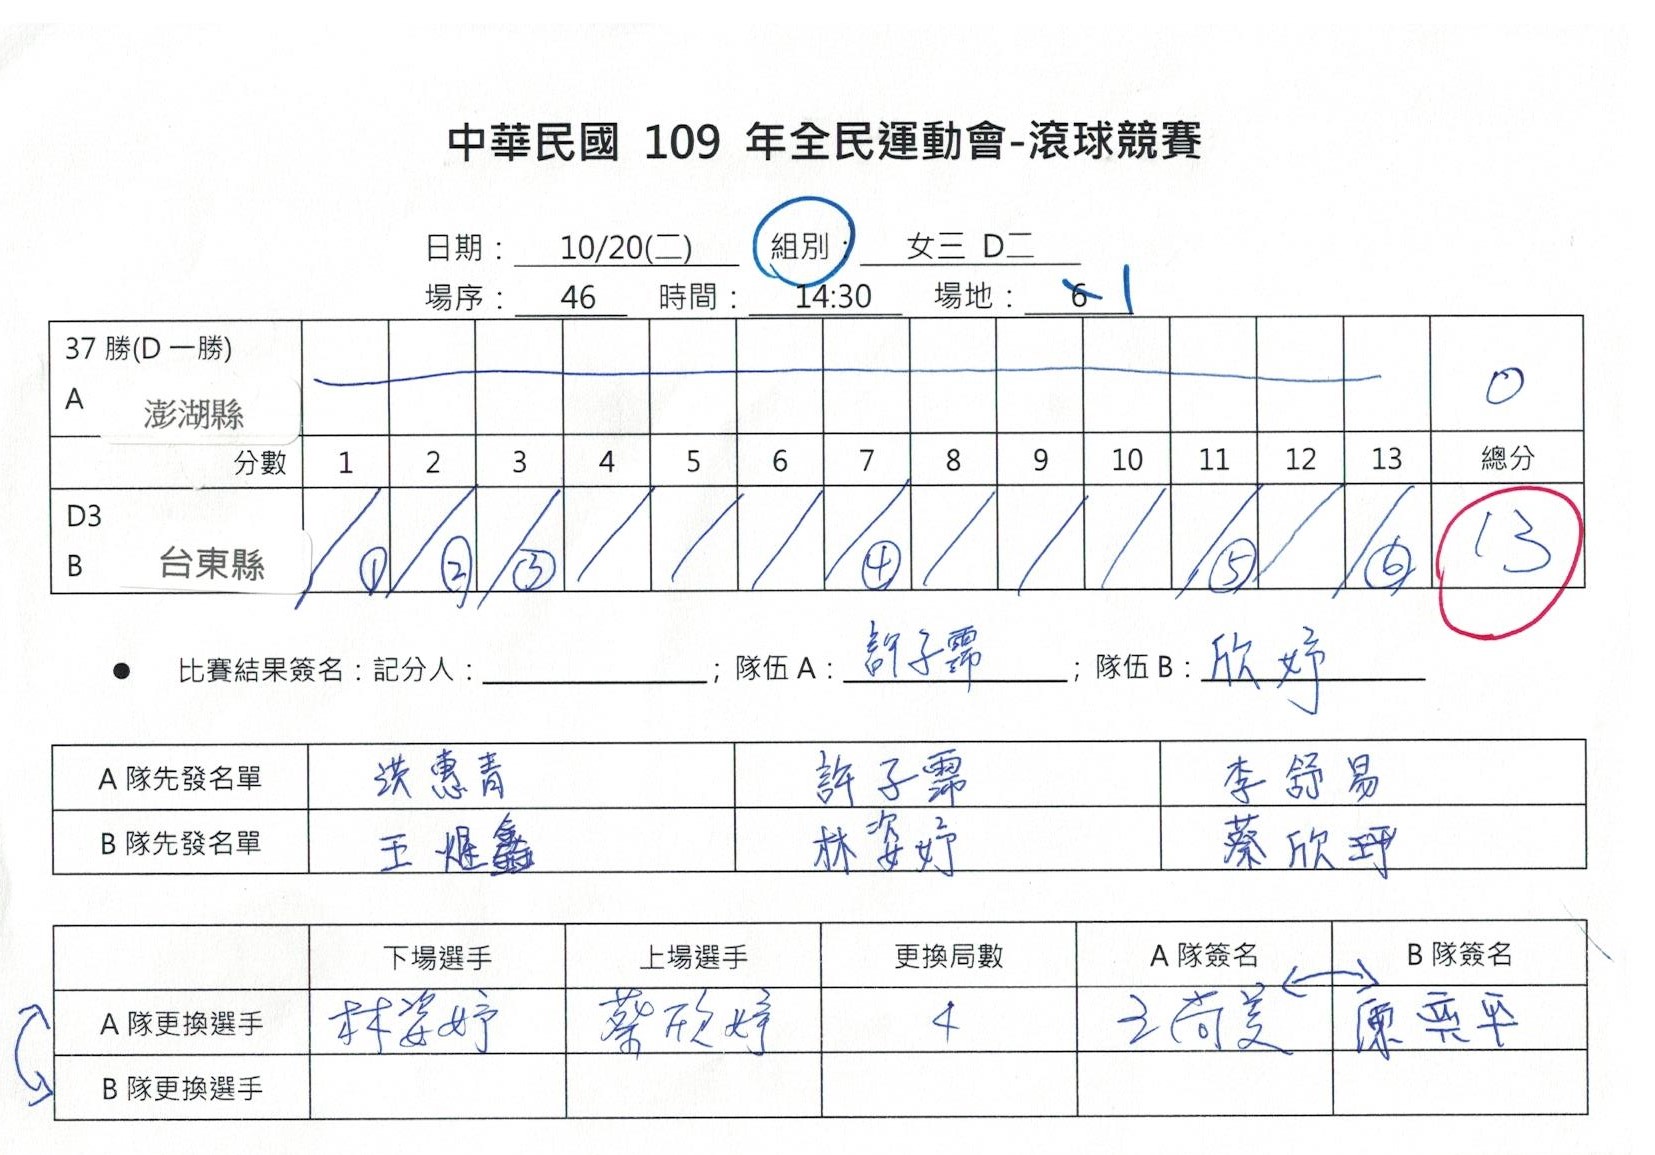 中華民國 109 年全民運動會-滾球競賽
日期： 10/20(二) 組別： 女三 D二
場序： 46 時間： 14:30 場地： 6 1
37 勝(D 一勝)
A 澎湖縣 0
分數 1 2 3 4 5 6 7 8 9 10 11 12 13 總分
D3
B 台東縣 ① ② ③ ④ ⑤ ⑥ 13
● 比賽結果簽名：記分人： ；隊伍 A： 許子霈 ；隊伍 B： 欣妤
A 隊先發名單 洪惠青 許子霈 李舒易
B 隊先發名單 王 林姿妤 蔡欣
下場選手 上場選手 更換局數 A 隊簽名 B 隊簽名
A 隊更換選手 林姿妤 蔡欣 4 王尚美
B 隊更換選手